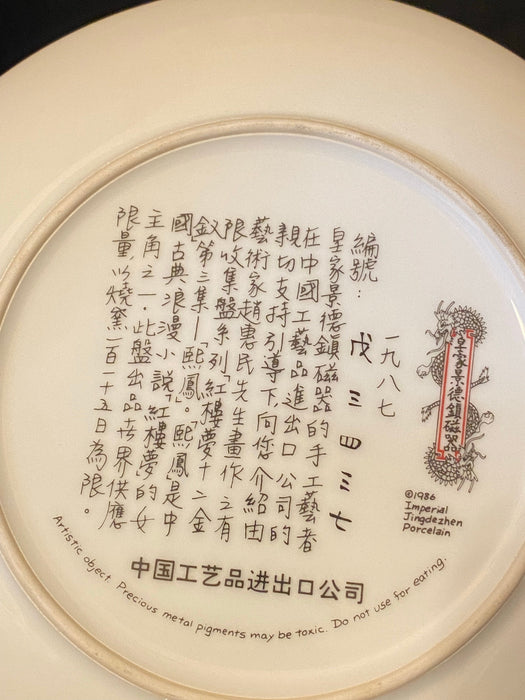 皇家景德鎮磁器
©1986
Imperial
Jingdezhen
Porcelain
一九八七
編號：戊三四三七
皇家景德鎮磁器的手工藝者
在中國工藝品進出口公司的
親切支持引導下向您介紹由
藝術家趙惠民先生畫作之有
限收集盤系列「紅樓夢十二金
釵」第三集—「熙鳳」。熙鳳是中
國古典浪漫小說「紅樓夢」的女
主角之一．此盤出品世界供應
限量，以燒窯一百一十五日為限。
中国工艺品进出口公司
Artistic object. Precious metal pigments may be toxic. Do not use for eating.